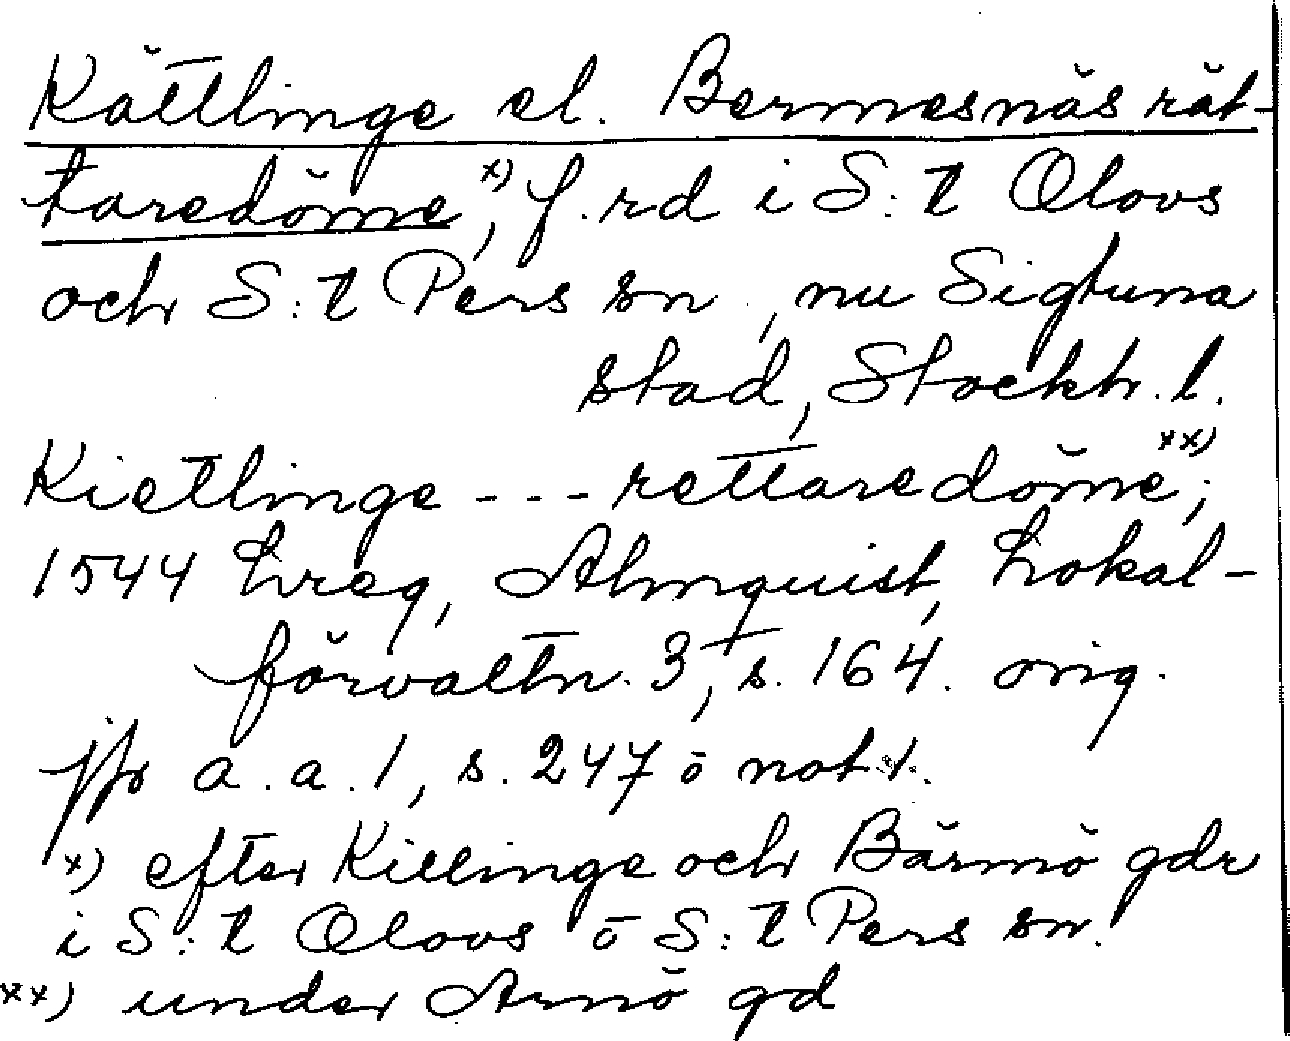 Kättlinge el. Bermesnäs rät-
taredöme x), f.rd i S:t Olovs
och S:t Pers sn, nu Sigtuna
stad, Stockh. l.
Kietlinge --- rettaredöme xx);
1544 Lreg, Almquist, Lokal-
förvaltn. 3, s. 164. orig.
jfr a.a. 1, s. 247 o not 1.
x) efter Killinge och Bärmö gdr
i S:t Olovs o S:t Pers sn.
xx) under Arnö gd